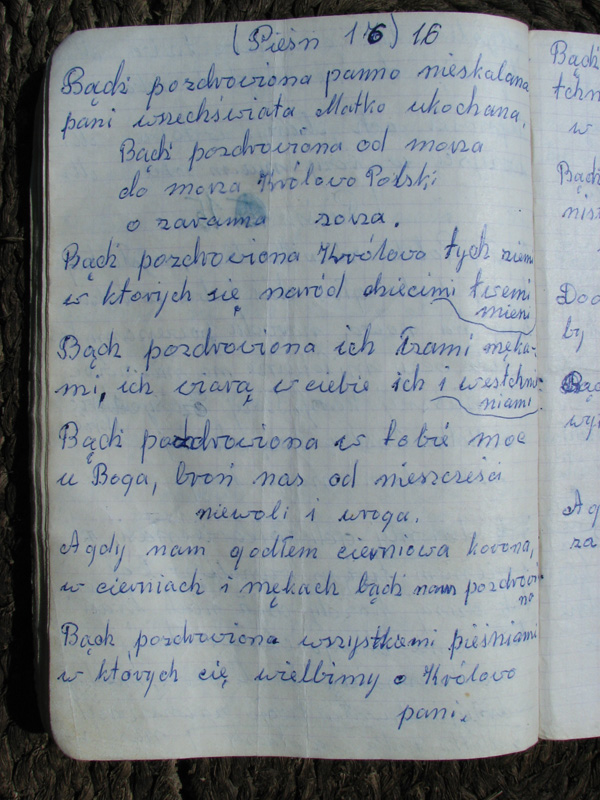 (Pieśń 16) 16
Bądź pozdrowiona panno nieskalana
pani wszechświata Matko ukochana,
Bądź pozdrowiona od morza
do morza Królowo Polski
o zaranna zorza.
Bądź pozdrowiona Królowo tych ziem
w ktorych się naród dziecimi twemi
mieni
Bądź pozdrowiona ich łzami męka-
mi, ich wiarą w ciebie ich i westchnie-
niami
Bądź pozdrowiona w tobie moc
u Boga, broń nas od nieszcześci
niewoli i wroga.
A gdy nam godłem cierniowa korona,
w cierniach i mękach bądź nam pozdrowio-
na
Bądź pozdrowiona wszystkiemi pieśniami
w których cię wielbimy o Królowo
pani.
Bądź
tchn
w
Bądź
nis
Dod
by
Bąd
wyi
A g
za